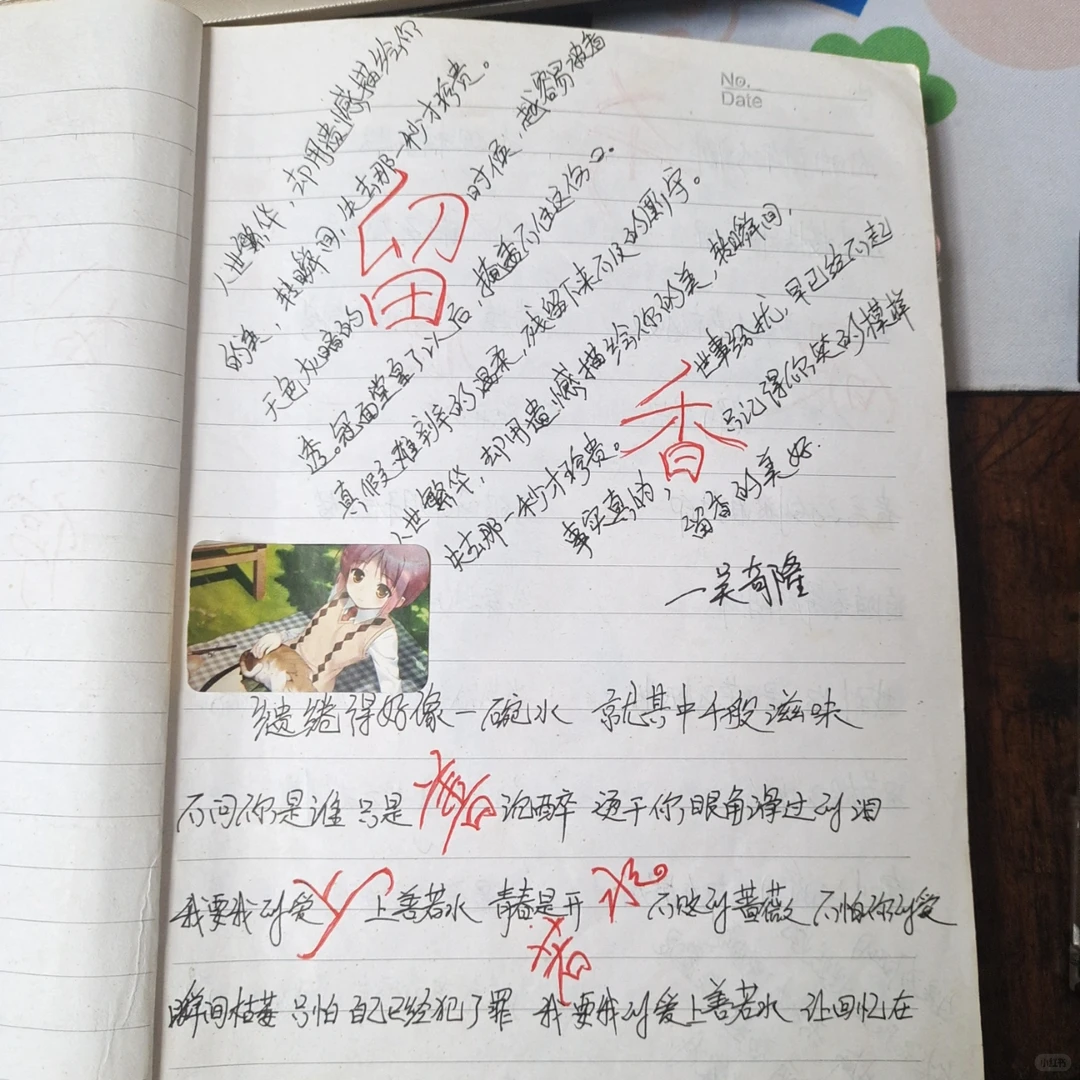 No.
Date
人世繁华，却用遗憾描绘你
的美，转瞬间，失去那一秒才珍贵。
留
天色灰暗的时候，越容易被看
透。冠冕堂皇了以后，掩盖不住这伤口。
真假难 的温柔，残留下来不及的
人世繁华，却用遗憾描绘你的美，转瞬间，
失去那一秒才珍贵。世事纷扰，早已经不起
香
事实真的，只记得你笑的模样
留香的美好.
一吴奇隆
缱绻得好像一碗水 就其中千般滋味
不问你是谁 只是 沉醉 烫干你眼角滑过的泪
我要我的爱 上善若水 青春是开 水 不败的蔷薇 不怕你的爱
若
瞬间枯萎 只怕自己已经犯了罪 我要我的爱上善若水 让回忆在
小红书